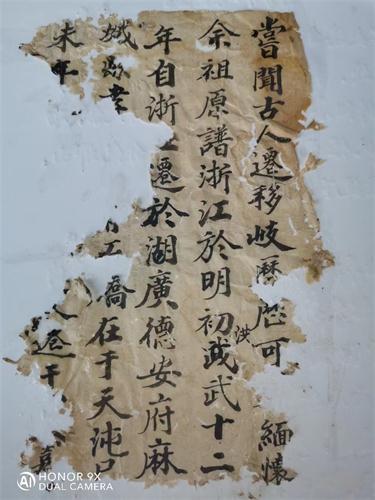 嘗聞古人遷移岐曆歷可緬懷
余祖原譜浙江於明初武十二
洪
年自浙遷於湖廣德安府麻
城工喬在于天
未年遷于
HONOR 9X
AI DUAL CAMERA